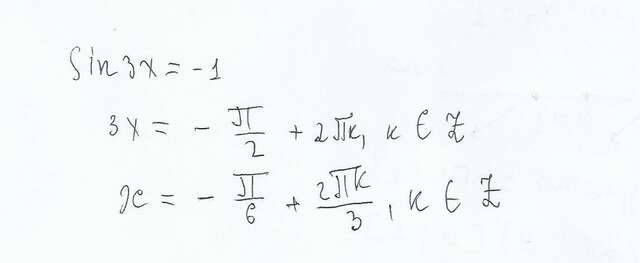 Sin 3x = -1
3x = - π/2 + 2πk, k ∈ Z
x = - π/6 + 2πk/3, k ∈ Z